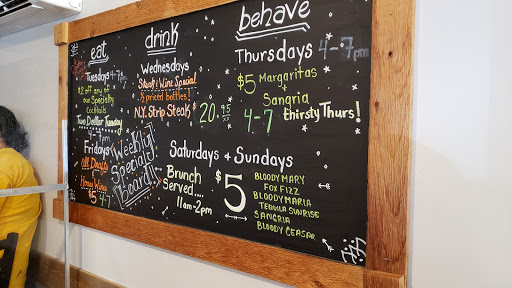 eat
drink
behave
Tuesdays 4-7
$2 off any of
our Specialty
Cocktails
Two Dollar Tuesday
Fridays
All Drafts
&
House Wine
$5 4-7
Weekly
Specials
Board!
Wednesdays
Steak & Wine Special
½ priced bottles!
N.Y. Strip Steak!
20.95
Thursdays 4-7pm
$5 Margaritas
+
Sangria
4-7 thirsty Thurs!
Saturdays + Sundays
Brunch
Served....
11am-2pm
$5
Bloody Mary
Fox Fizz
Bloody Maria
Tequila Sunrise
Sangria
Bloody Ceasar